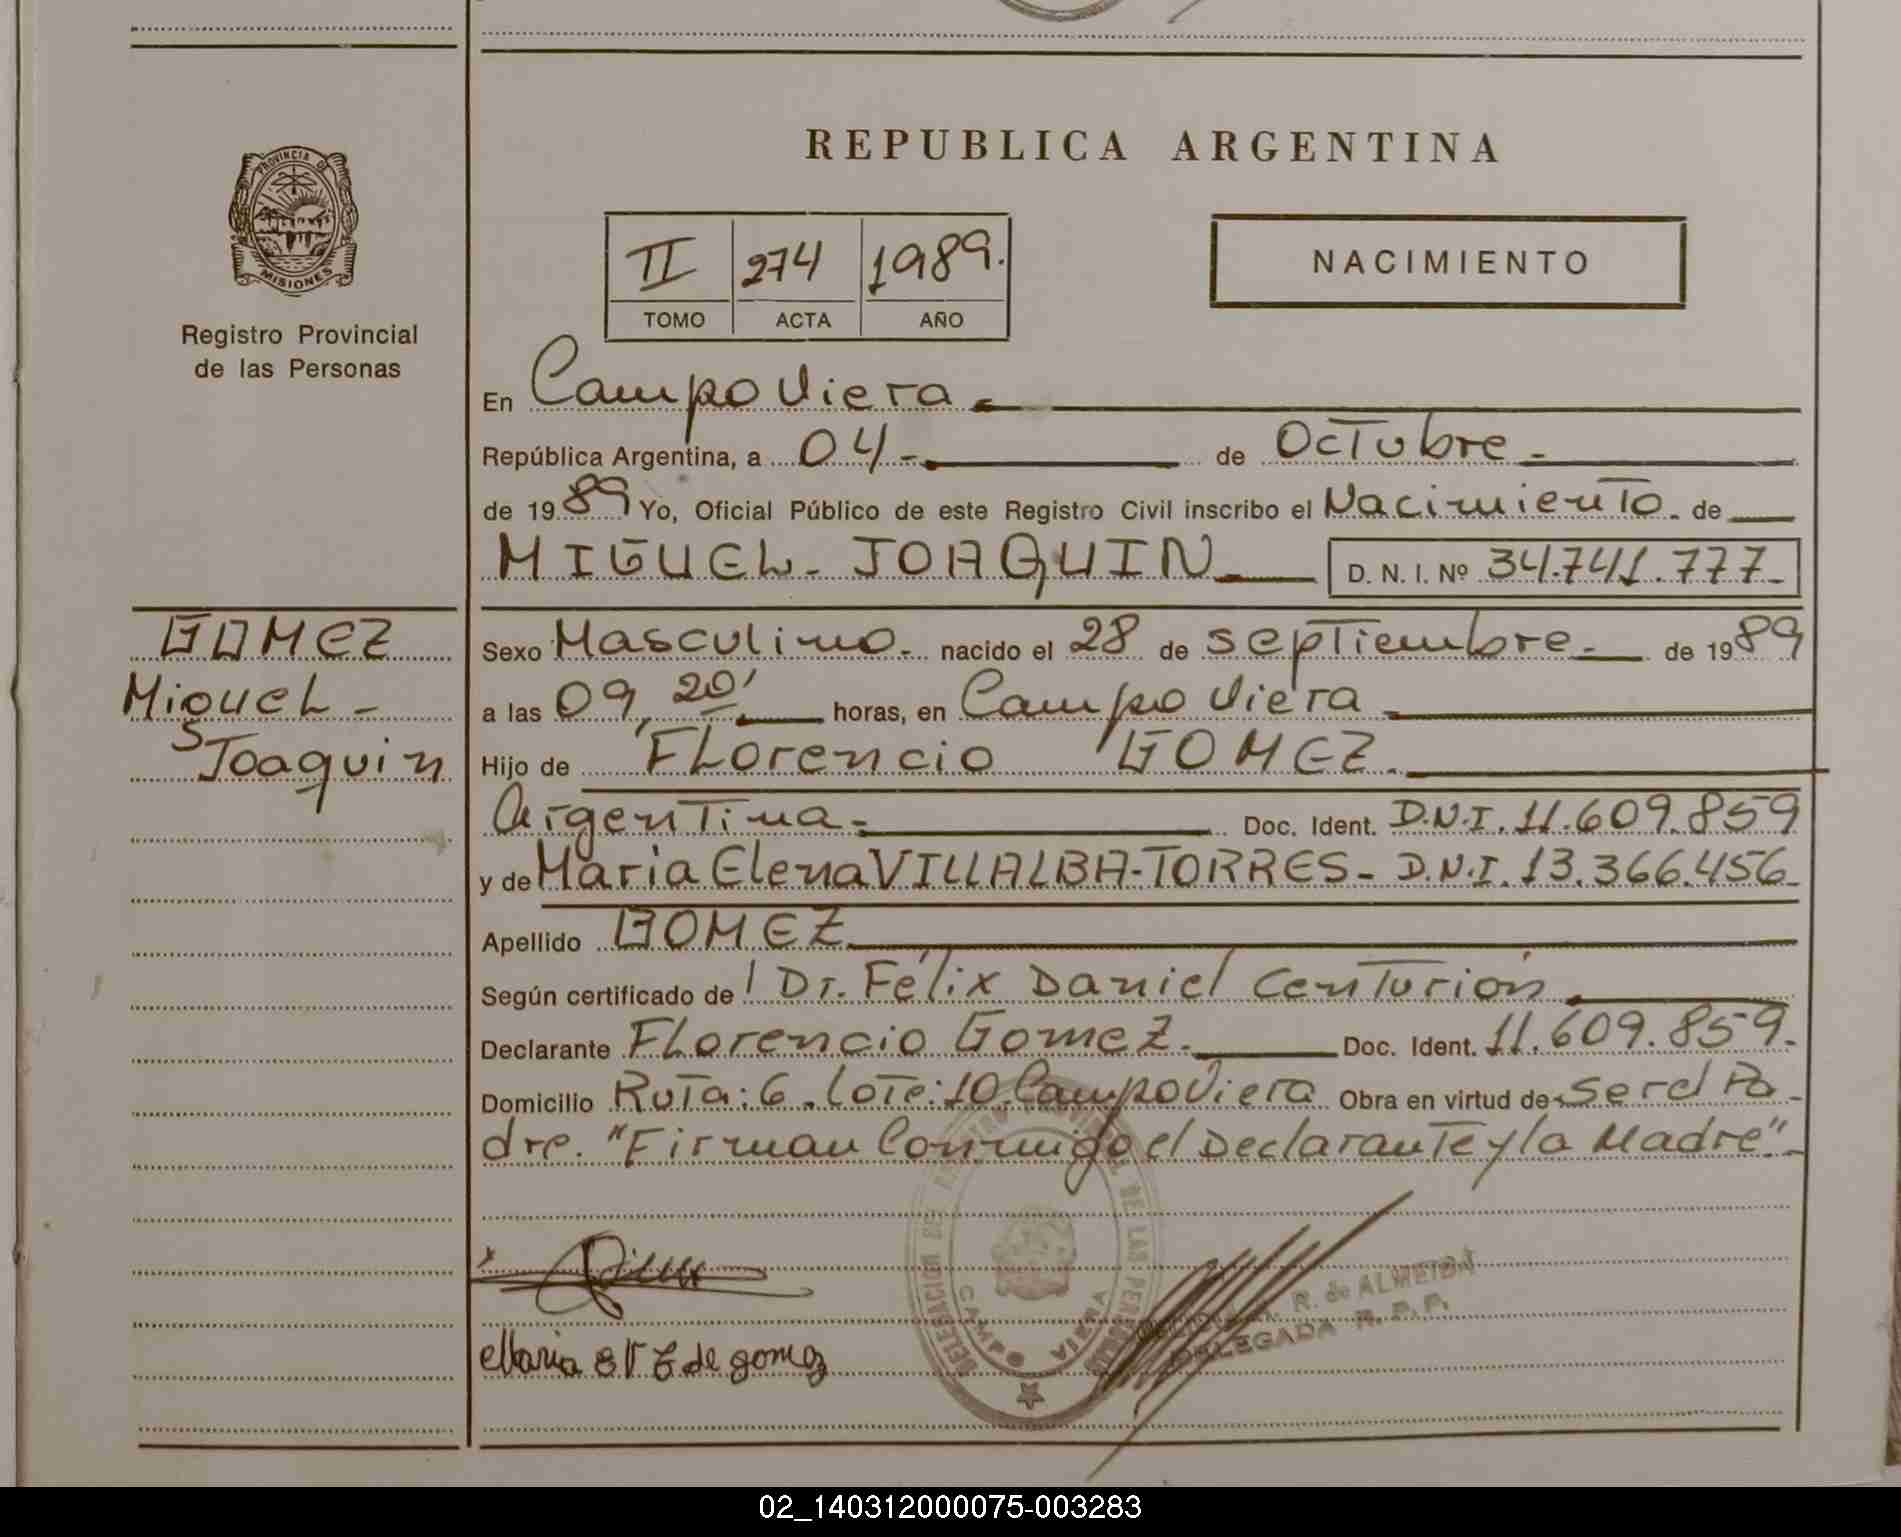 REPUBLICA ARGENTINA
PROVINCIA DE
MISIONES
Registro Provincial
de las Personas
II 274 1989.
TOMO ACTA AÑO
NACIMIENTO
En Campo Viera
República Argentina, a 04 - de Octubre -
de 1989 Yo, Oficial Público de este Registro Civil inscribo el Nacimiento. de
MIGUEL - JOAQUIN D. N. I. Nº 34.741.777-
GOMEZ
Miguel -
Joaquin
Sexo Masculino - nacido el 28 de septiembre - de 1989
a las 09, 20' horas, en Campo Viera
Hijo de Florencio GOMEZ.
Argentina - Doc. Ident. D.N.I. 11.609.859
y de Maria Elena VILLALBA-TORRES - D.N.I. 13.366.456-
Apellido GOMEZ
Según certificado de Dr. Félix Daniel Centurión
Declarante Florencio Gomez. Doc. Ident. 11.609.859.
Domicilio Ruta: 6. Lote: 10. Campo Viera Obra en virtud de ser el Pa-
dre. "Firman Conmigo el Declarante y la Madre" -
Maria E V T de gomez
DELEGACION DEL REGISTRO PROVINCIAL DE LAS PERSONAS
CAMPO VIERA
R. de ALMEIDA
DELEGADA R. P. P.
02_140312000075-003283